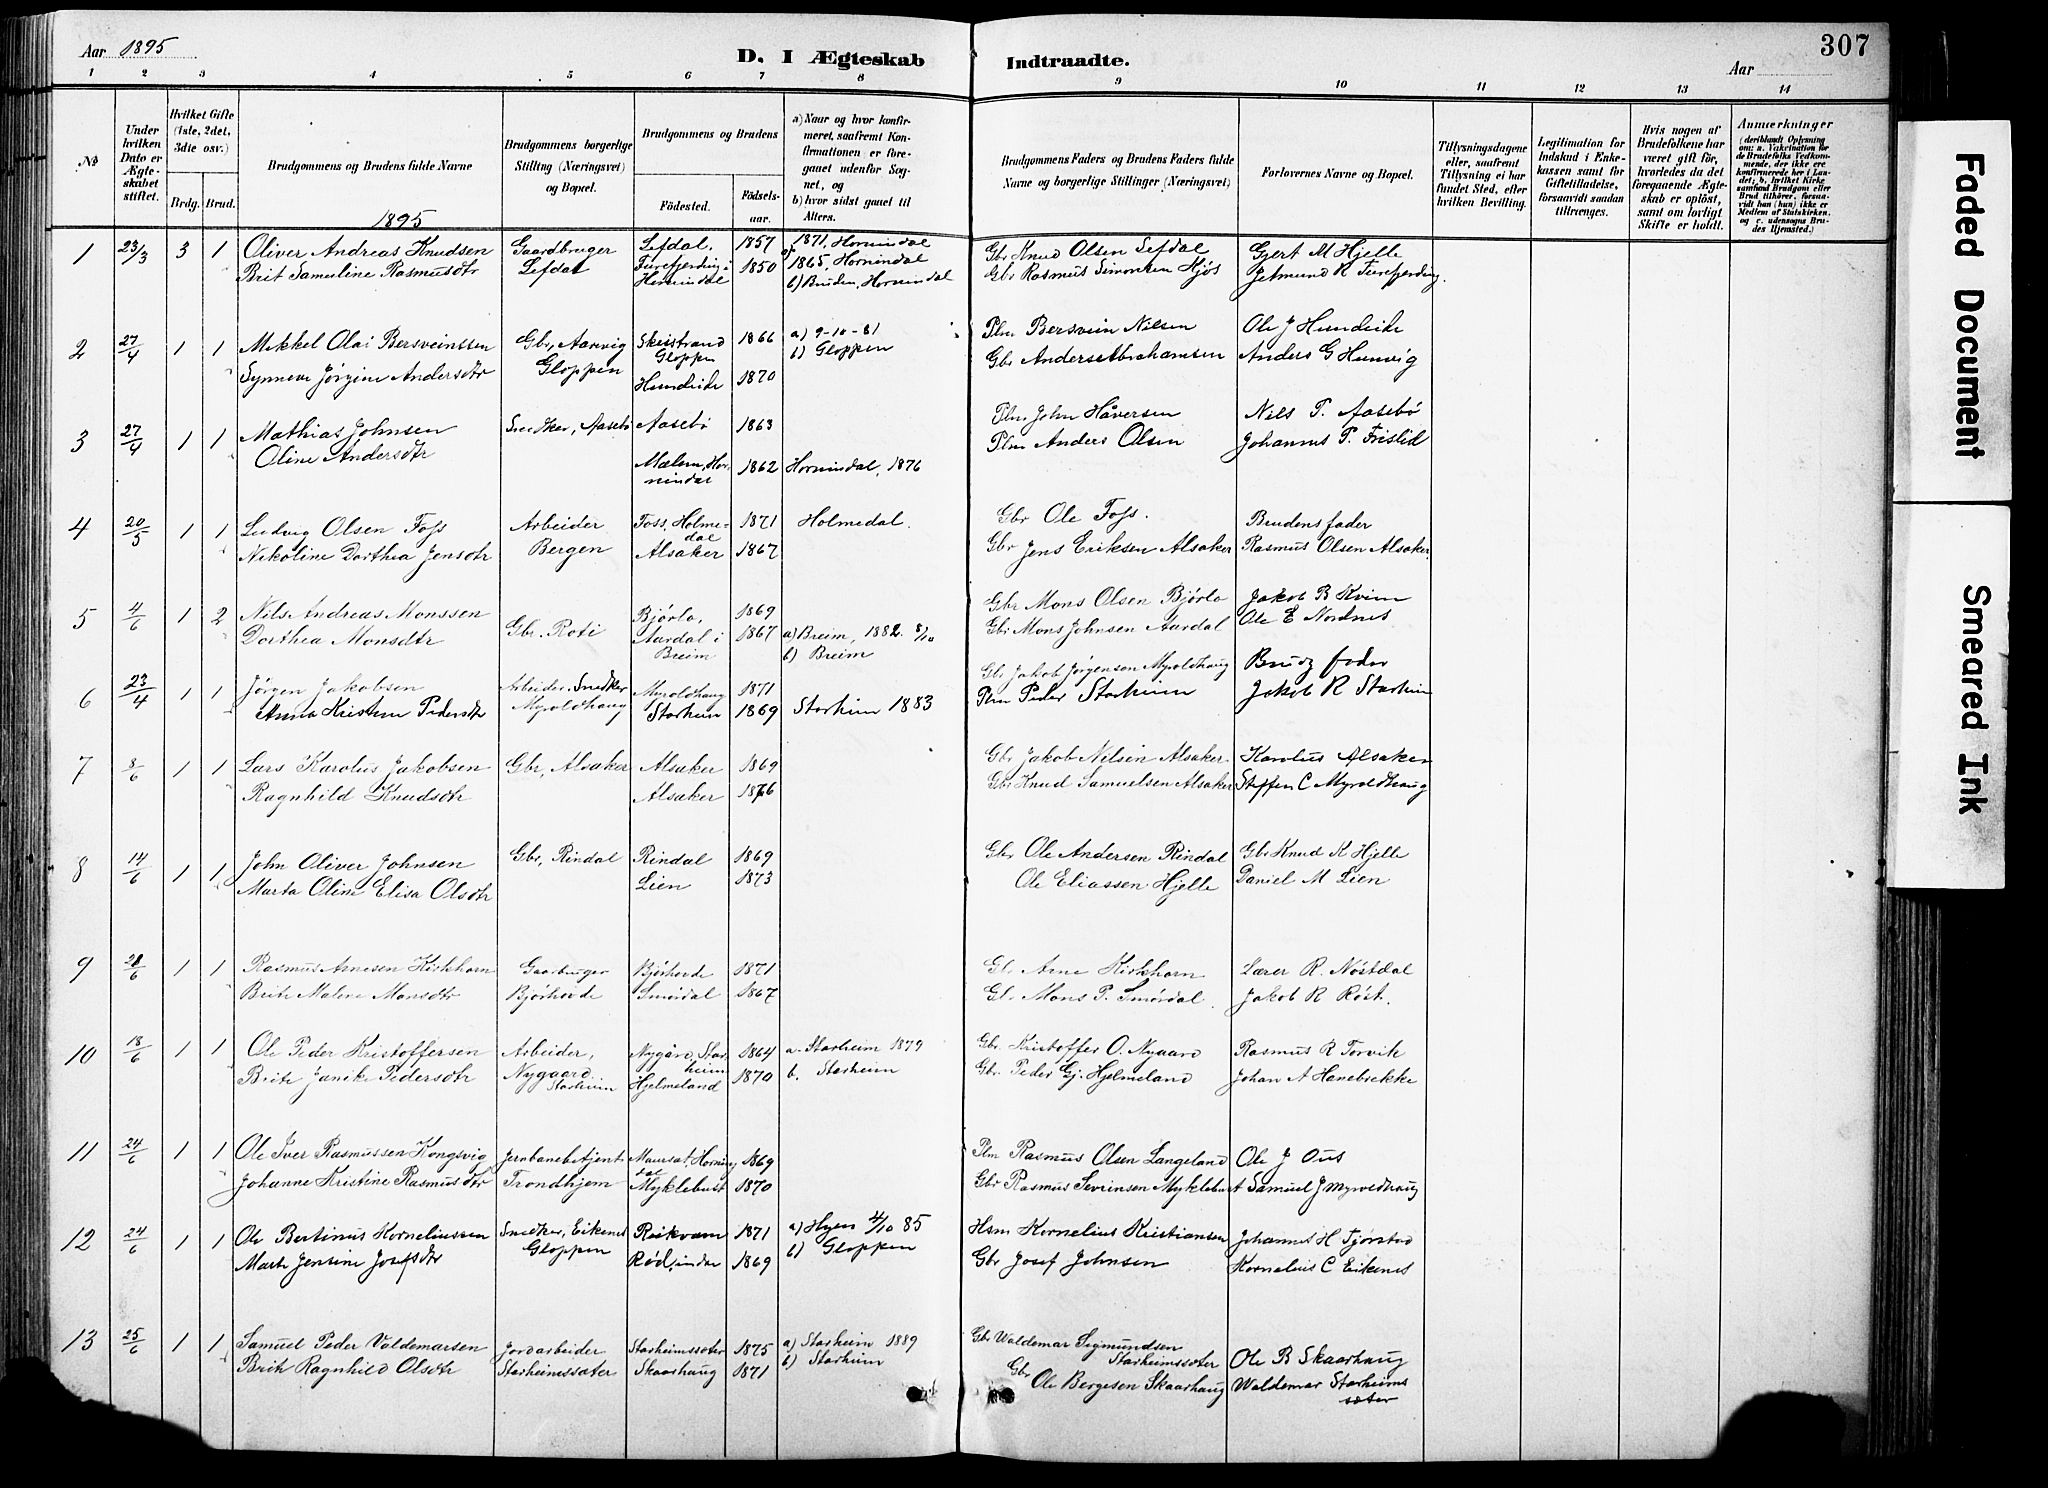 Aar 1895 D. I Ægteskab Indtraadte. Aar 307
1 2 3 4 5 6 7 8 9 10 11 12 13 14
№
Under hvilken Dato er Ægteskabet stiftet.
Hvilket Gifte (1ste, 2det, 3die osv.)
Brdg. Brud.
Brudgommens og Brudens fulde Navne
Brudgommens borgerlige Stilling (Næringsvei) og Bopæl.
Brudgommens og Brudens
Fødested. Fødselsaar.
a) Naar og hvor konfirmeret, saafremt Konfirmationen er foregaaet udenfor Sognet, og
b) hvor sidst gaaet til Alters.
Brudgommens Faders og Brudens Faders fulde Navne og borgerlige Stillinger (Næringsvei)
Forlovernes Navne og Bopæl.
Tillysningsdagene eller, saafremt Tillysning ei har fundet Sted, efter hvilken Bevilling.
Legitimation for Indskud i Enkekassen samt for Giftetilladelse, forsaavidt saadan tiltrænges.
Hvis nogen af Brudefolkene har været gift før, hvorledes da det foregaaende Ægteskab er opløst, samt om lovligt Skifte er holdt.
Anmærkninger (deriblandt Oplysning om: a. Vakcination for de Brudefolks Vedkommende, der ikke ere konfirmerede her i Landet; b. hvilket Kirkesamfund Brudgom eller Brud tilhører, forsaavidt han (hun) ikke er Medlem af Statskirken, og c. udensogns Brudes Hjemsted.)
1895
1 23/3 3 1 Oliver Andreas Knudsen Gaardbruger Lefdal, 1857 1871, Hornindal Gbr Knud Olsen Lefdal Gjert M Hjelle
Brit Samuline Rasmusdtr Lefdal Furefjerding i Hornindal 1850 1865, Hornindal Gbr Rasmus Simonsen Hjøs Jetmund R Furefjerding.
b) Bruden, Hornindal
2 27/4 1 1 Mikkel Olai Bersveinssen Gbr, Aarvig Skeistrand Gloppen 1866 a) 9-10-81 Plm Bersvein Nilsen Ole J Hundeide
Synneve Jørgine Andersdtr Gloppen Hundeide 1870 b) Gloppen Gbr Anders Abrahamsen Anders G Hunvig
3 27/4 1 1 Mathias Johnsen Snedker, Aasebø Aasebø 1863 Plm John Håversen Nils P. Aasebø
Oline Andersdtr Mælem, Hornindal 1862 Hornindal, 1876 Plm Anders Olsen Johannes P. Frislid
4 20/5 1 1 Ludvig Olsen Foss Arbeider Foss, Holmedal 1871 Holmedal. Gbr Ole Foss. Brudens fader
Nikoline Dorthea Jensdtr Bergen Alsaker 1867 Gbr Jens Eriksen Alsaker Rasmus Olsen Alsaker
5 4/6 1 2 Nils Andreas Monssen Gbr. Roti Bjørlo, 1869 Gbr Mons Olsen Bjørlo Jakob B Kviin
Dorthea Monsdtr Aardal i Breim 1867 a) Breim, 1882. 8/10 Gbr Mons Johnsen Aardal Ole E Nordnes
b) Breim
6 23/4 1 1 Jørgen Jakobsen Arbeider, Snedker Myroldhaug 1871 Gbr Jakob Jørgensen Myroldhaug Brudg fader
Anna Kristine Pedersdtr Myroldhaug Starheim 1869 Starheim 1883 Plm Peder Starheim Jakob R Starheim
7 8/6 1 1 Lars Karolus Jakobsen Gbr, Alsaker Alsaker 1869 Gbr Jakob Nilsen Alsaker Karolus Alsaker
Ragnhild Knudsdtr Alsaker 1876 Gbr Knud Samuelsen Alsaker Steffen C Myroldhaug
8 14/6 1 1 John Oliver Johnsen Gbr, Rindal Rindal 1869 Gbr Ole Andersen Rindal Gbr Knud K Hjelle
Marta Oline Elisa Olsdtr Lien 1873 Ole Eliassen Hjelle Daniel M Lien
9 28/6 1 1 Rasmus Arnesen Kirkhorn Gaarbruger Bjørhovde 1871 Gbr Arne Kirkhorn Lærer R. Nøstdal
Brite Malene Monsdtr Bjørhovde Smørdal 1867 Gbr Mons P. Smørdal. Jakob R Røst.
10 18/6 1 1 Ole Peder Kristoffersen Arbeider, Nygård, Starheim 1864 a. Starheim 1879 Gbr. Kristoffer O. Nygaard Rasmus R Torvik
Brite Janike Pedersdtr Nygaard Starheim Hjelmeland 1870 b. Starheim Gbr. Peder Gj. Hjelmeland Johan A Hanebrekke
11 24/6 1 1 Ole Iver Rasmussen Kongsvig Jernbanebetjent Maurset, Hornindal 1869 Plm Rasmus Olsen Langeland Ole J Ous
Johanne Kristine Rasmusdtr Trondhjem Myklebust 1870 Gbr Rasmus Sevrinsen Myklebust Samuel J Myroldhaug
12 24/6 1 1 Ole Bertinus Korneliussen Snedker, Eikenes Reikvam 1871 a) Hyen 4/10 85 Hsm Kornelius Kristiansen Johannes H Fjørstad
Marte Jensine Josefsdtr Gloppen Rød, indre 1869 b) Gloppen Gbr Josef Johnsen Kornelius C Eikenes
13 25/6 1 1 Samuel Peder Valdemarsen Jordarbeider Starheimssæter 1875 a) Starheim 1889 Gbr Waldemar Sigmundsen Starheimssæter Ole B Skaarhaug
Brite Ragnhild Olsdtr Starheimssæter Skaarhaug 1871 b) Starheim Gbr Ole Bergesen Skaarhaug Waldemar Starheimssæter
Faded Document
Smeared Ink